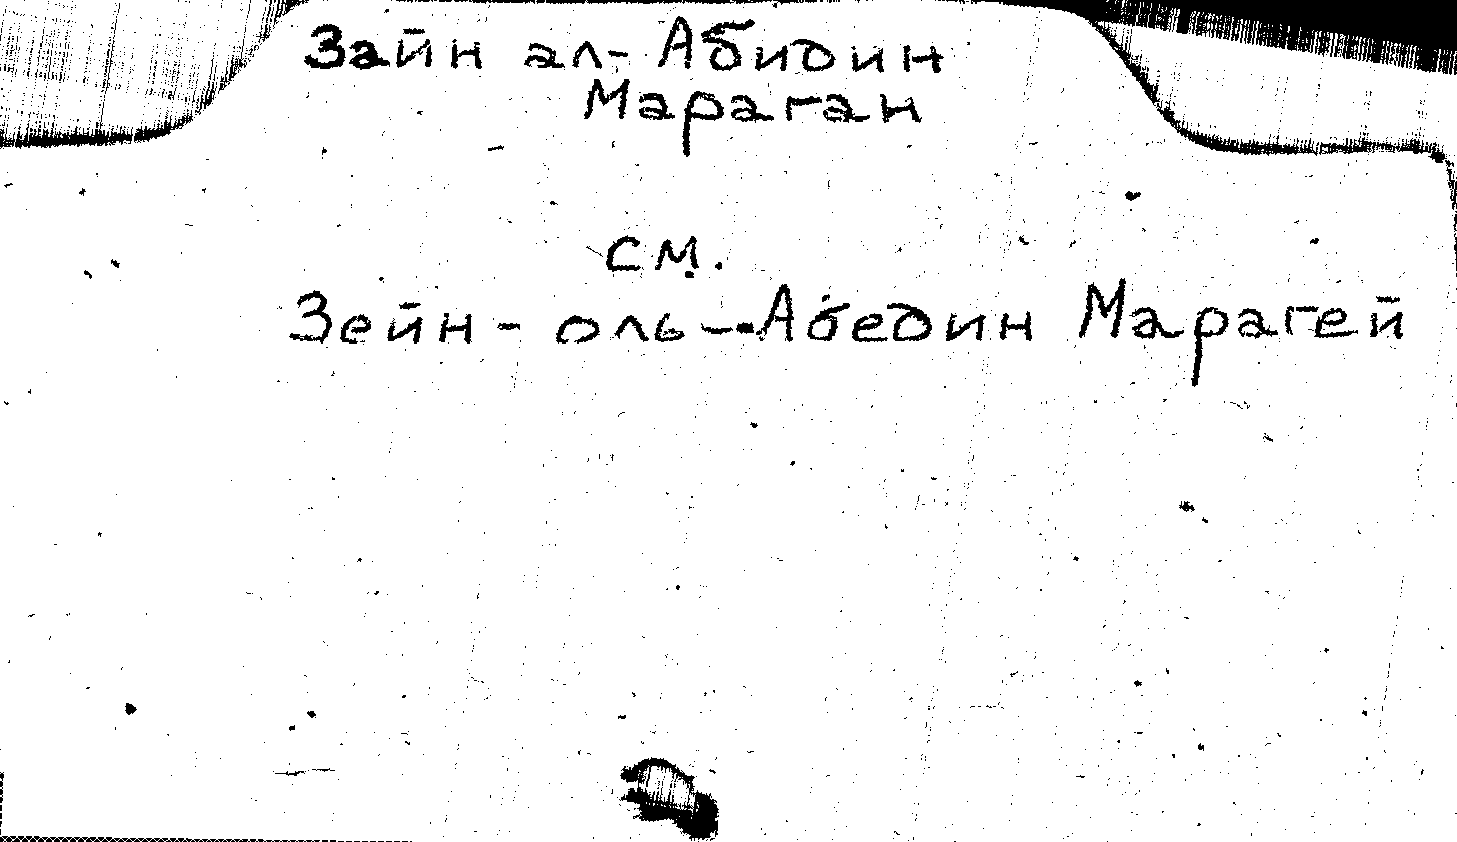 Зайн ал-Абидин
Мараган
см.
Зейн-оль-Абедин Марагей